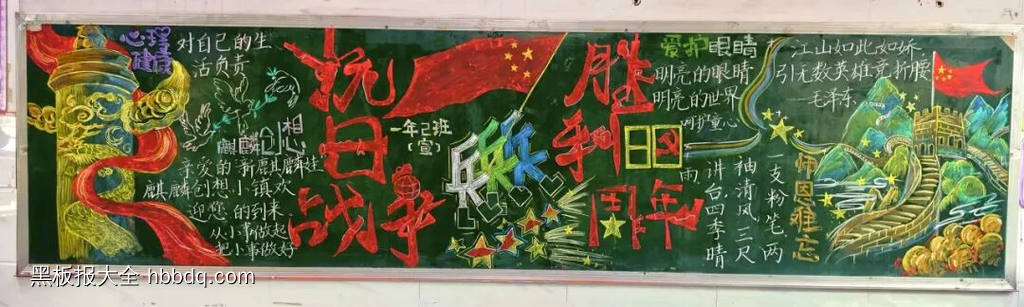 心理
健康
对自己的生
活负责
麒麟创想
亲爱的新麒麟娃
麒麟创想小镇欢
迎您的到来
从小事做起
把小事做好
抗日战争
一年2班
(宣)
乒乓
胜利
周年
爱护眼睛
明亮的眼睛
明亮的世界
呵护童心
江山如此如娇
引无数英雄竞折腰
毛泽东
师恩难忘
一支粉笔两
袖清风三尺
讲台四季晴
雨
黑板报大全 hbbdq.com